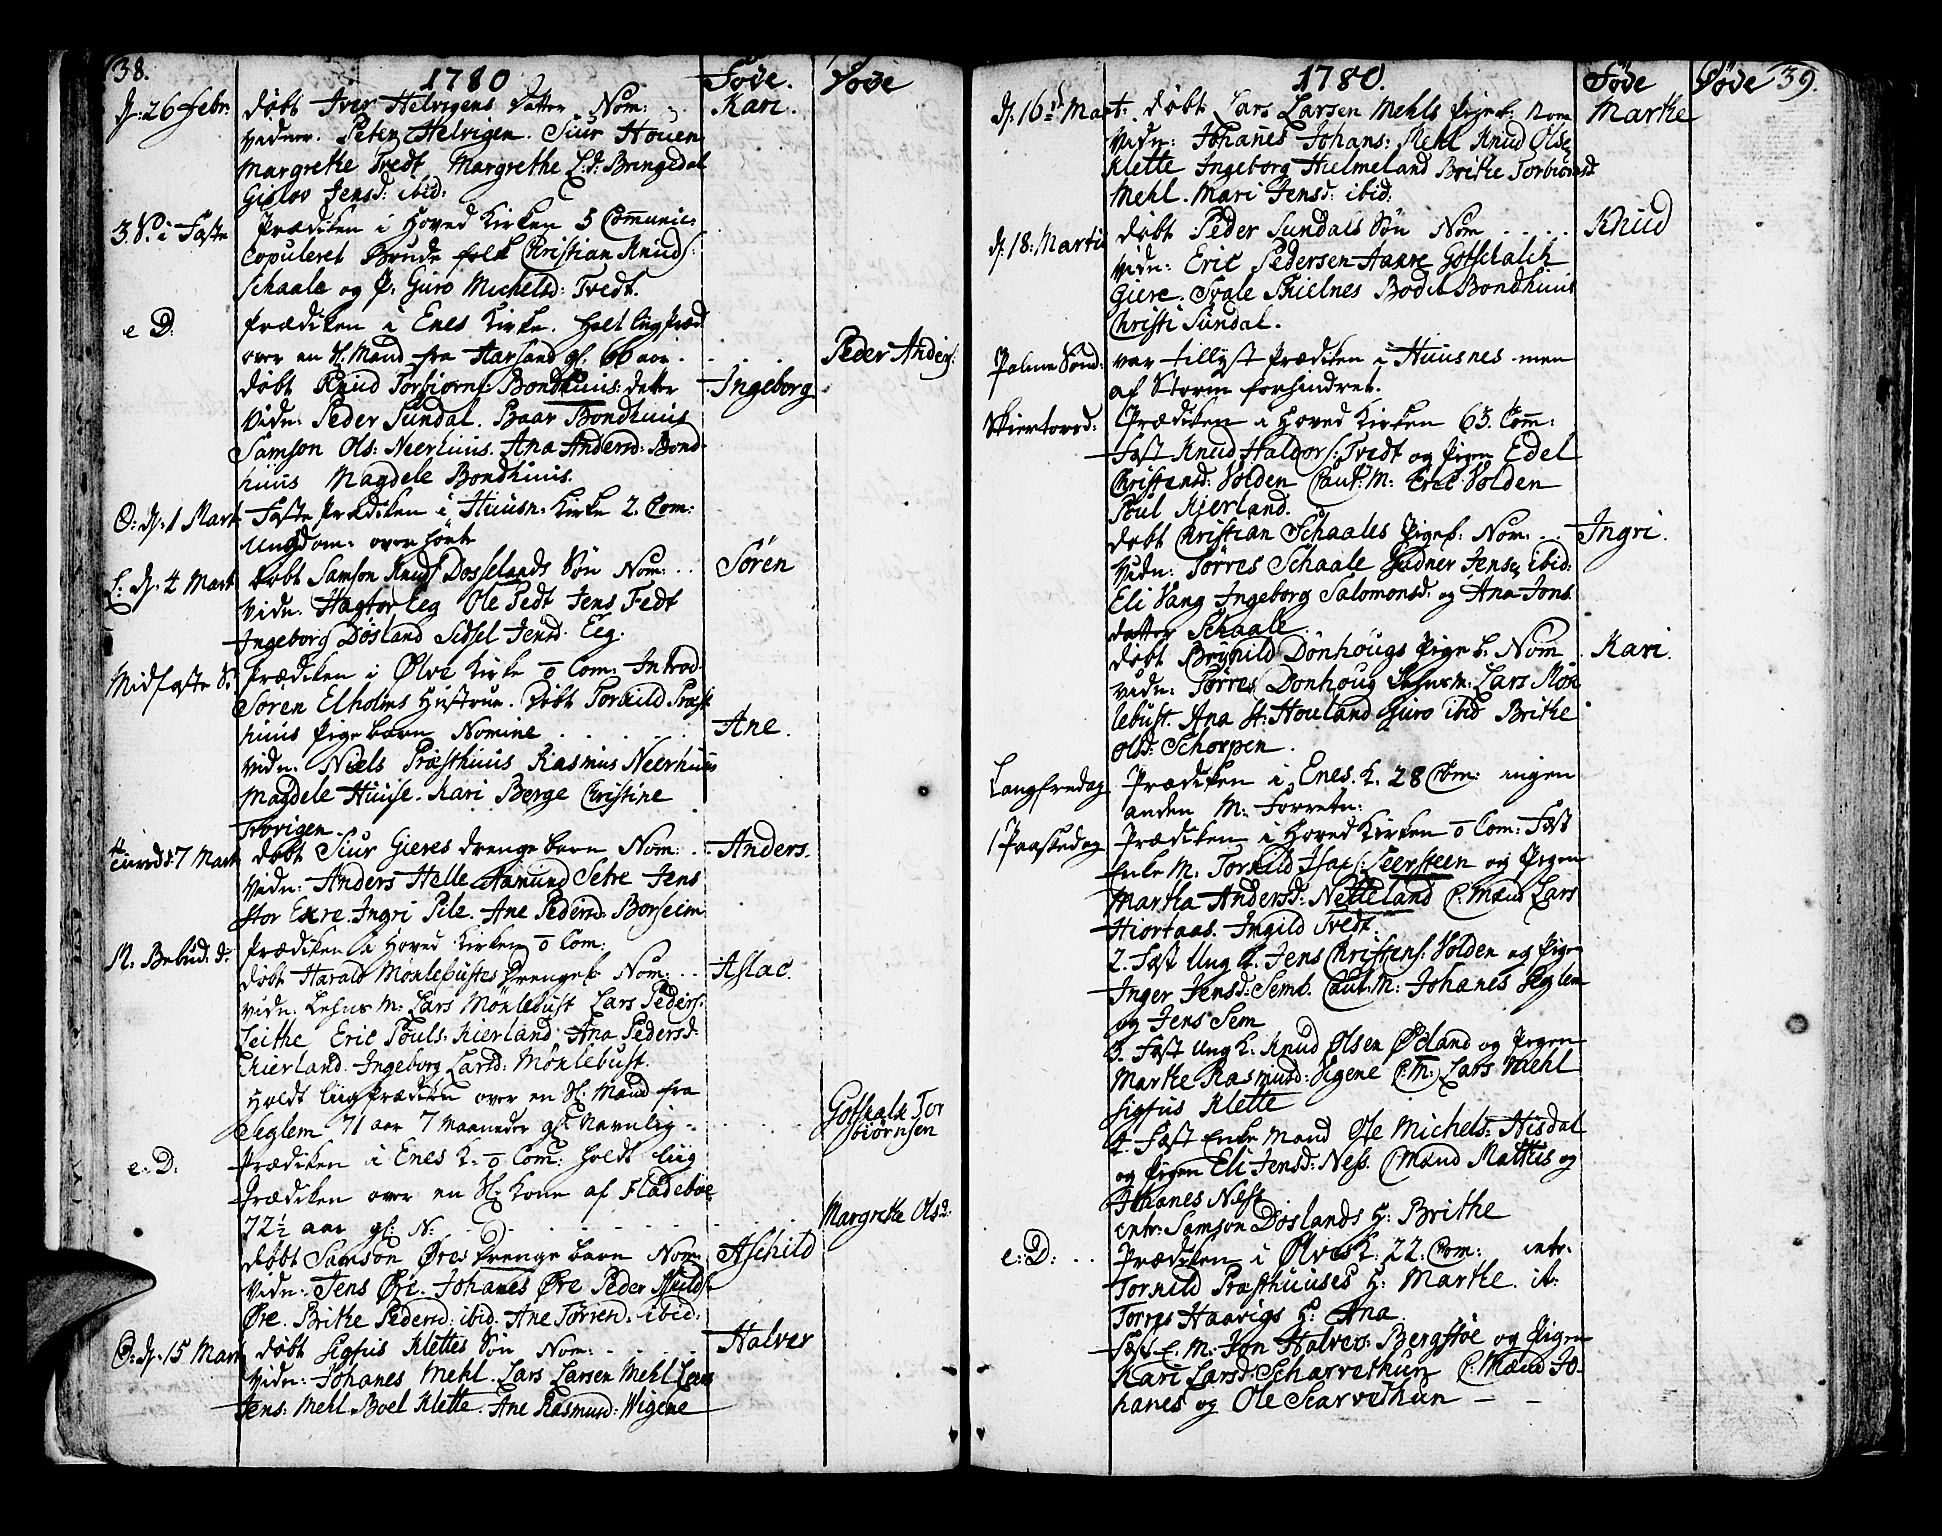 38.
1780
Føde.
Døde
D: 26 Febr:
døbt Iver Helvigens datter Nom:
Kari.
vidner. Peter Helvigen. Siur Houen
Margrethe Tvedt Margrethe L:d: Bringedal
Gislov Jensd: ibid:
3. S: i Faste
Prædiken i Hoved Kirken 5 Communic:
Copuleret Brude folk Christian Knuds:
Schaale og P: Guro Michelsd: Tvedt.
e D:
Prædiken i Enes Kirke. holt liigpræd
over en Sl. Mand fra Aarsand gl. 66 aar.
Peder Anders:
døbt Knud Torbiorns: Bondhuus: datter
Ingeborg
Vidn: Peder Sundal. Baar Bondhuus
Samson Ols: Neerhuus. Ana Andersd: Bond-
huus Magdele Bondhuus.
O: D: 1 Mart
Faste Prædiken i Huusn: Kirke 2. Com:
Ungdom: overhørt
L: D: 4 Mart
døbt Samson Knuds Dosselands Søn Nom:
Søren
Vidn. Hagtor Eeg Ole Tedt Jens Tedt
Ingeborg Døsland Sidsel Jensd: Eeg.
Midfaste S:
Prædiken i Ølve Kirke 0 Com: Introd.
Søren Elholms Hustrue. Døbt Torkild Præst
huus Pigebarn Nomine
Ane.
Vidn: Niels Præsthuus Rasmus Neerhuus
Magdele Huuse. Kari Berge Christine
Trovigen.
D: 7 Mart
døbt Siur Gieres drenge barn Nom:
Anders.
Vidn: Anders Helle Aamund Setre Jens
stor Exre. Ingri Pile. Ane Pedersd: Borseim
M. Bebud: D:
Prædiken i Hoved Kirken 0 Com:
døbt Harald Monlebustes Drengeb: Nom:
Aslac.
vidn: Lehns M: Lars Monlebust Lars Peders:
Teithe Eric Pouls: Kierland. Ana Pedersd:
Kierland. Ingeborg Larsd: Monlebust.
Holdt liigprædiken over en Sl: Mand fra
Seglem 71 aar 7 Maaneder gl: Navnlig
Gotskalk Tor
biørnsen
e: D:
Prædiken i Enes K. 0 Com: holdt liig
Prædiken over en Sl: Kone af Fladebøe
72½ aar gl: N:
Margrethe Olsd:
døbt Samson Øres drenge barn Nom
Aschild
Vidn: Jens Øre. Johanes Øre Peder
Øre. Brithe Pedersd: ibid. Ane Torresd. ibid:
O: D: 15 Mart
døbt Sigfus Klettes Søn Nom:
Halver
Vidn: Johanes Mehl. Lars Larsen Mehl Lars
Jens: Mehl Boel Klette. Ane Rasmusd: Wigene
1780.
Føde
Døde
39.
D: 16d Mart:
døbt Lars Larsen Mehls Pigeb. Nom
Marthe
Vidn: Johanes Johans: Mehl Knud Olsen
Klette Ingeborg Hielmeland Brithe Torbiornsd
Mehl. Mari Jensd: ibid:
D: 18: Martii
døbt Peder Sundals Søn Nom
Knud
Vidn: Eric Pedersen Aakre Gotschalch
Giere. Svale Skielnes Bodil Bondhuus
Christi Sundal.
Palme Sønd:
var tillyst Prædiken i Huusnes men
af Storm forhindret.
Skiertorsd:
Prædiken i Hoved Kirken 63. Com:
Fæst Knud Haldors: Tvedt og Pigen Edel
Christensd: Volden Caut: M: Eric Volden
Poul Kierland.
døbt Christian Schaales Pigeb: Nom:
Ingri.
Vidn: Torres Schaale Gudner Jensen ibid:
Eli Vang Ingeborg Salomonsd: og Ana Jons
datter Schaale
døbt Brynild Donhougs Pige b. Nom
Kari.
vidn: Torres Donhoug Lehnsm: Lars Mon
lebust. Ana St: Houland Guro ibid Brithe
Olsd: Schorpen.
Langfredag
Prædiken i Enes. K. 28 Com: ingen
anden M: Forretn:
1 Paaskedag
Prædiken i Hoved Kirken 0 Com: Fæst
Enke M: Torkild Isacs: Teersteen og Pigen
Martha Andersd: Netteland C: Mænd Lars
Hiortaas. Ingild Tvedt:
2. Fæst Ung K. Jens Christens: Volden og Pigen
Inger Jensd: Semb. Caut: M: Johanes Seglem
og Jens Sem
3. Fæst Ung K. Knud Olsen Ødland og Pigen
Marthe Rasmusd: Vigene C: M: Lars Mehl
Sigfus Klette
4. Fæst Enke Mand Ole Michels: Hisdal
og Pigen Eli Jensd: Ness. C Mænd Mathis og
Johanes Ness
intr: Samson Doslands H: Brithe
e: D:
Prædiken i Ølves K. 22. Com: intr.
Torkild Præsthuuses H: Marthe. it:
Torres Haavigs H: Ana
Fæst E. M: Jon Halvers: Bergstøe og Pigen
Kari Larsd: Scharvethun C: Mænd Jo-
hanes og Ole Scarvethun